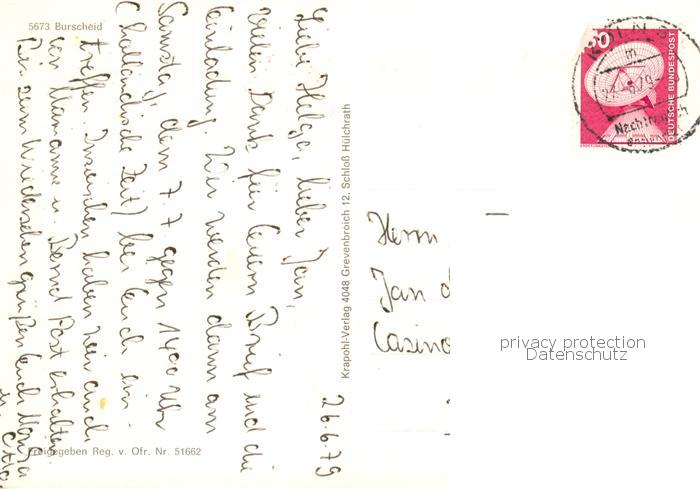 5673 Burscheid
26.6.79
Liebe Helga, lieber Jan,
vielen Dank für Euern Brief und die
Einladung. Wir werden dann am
Samstag, dem 7.7. gegen 14oo Uhr
(holländische Zeit) bei Euch ein-
treffen. Inzwischen haben wir auch
von Marianne u. Bernd Post erhalten.
Bis zum Wiedersehen grüßen Euch
u.
Freigegeben Reg. v. Ofr. Nr. 51662
Krapohl-Verlag 4048 Grevenbroich 12, Schloß Hülchrath
DEUTSCHE BUNDESPOST
Herrn
Jan d
Casino
privacy protection
Datenschutz